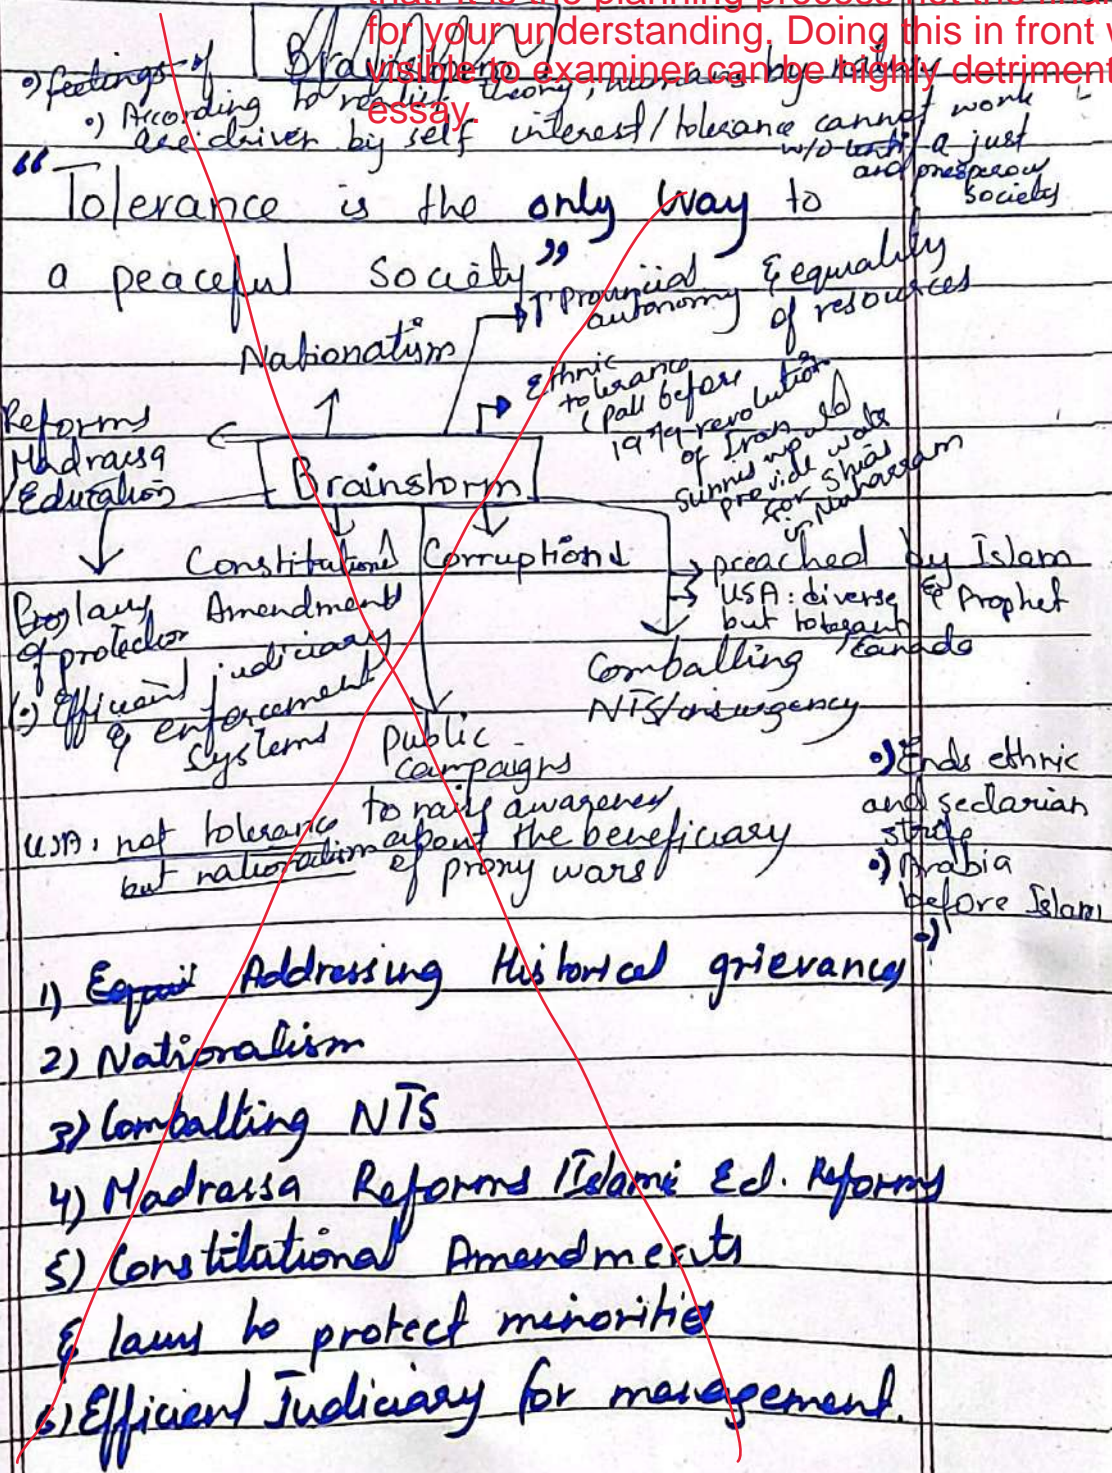 that. It is the planning process not the final
for your understanding. Doing this in front
visible to examiner can be highly detriment
essay.
•) feelings of
•) According to realist theory, humans by
are driven by self interest/tolerance cannot work
w/o a just
and prosperous
society
"Tolerance is the only way to
a peaceful society"
Provincial autonomy & equality of resources
Nationatism
Ethnic
tolerance
(Pak before
1979 revolution
of Iran
Sunnis would
provide water
for Shias
in Muharram
Reforms
Madrassa
/Education
Brainstorm
Constitutional
Amendments
Corruptions
preached by Islam
& Prophet
USA: diverse
but tolerant
Canada
laws
of protection
•) Efficient judiciary
& enforcement
Systems
Combatting
NTS/insurgency
public
campaigns
to raise awareness
about the beneficiary
of proxy wars
USA: not tolerance
but nationalism
•) Ends ethnic
and sectarian
strife
•) Arabia
before Islam
•)
1) Equit Addressing Historical grievances
2) Nationalism
3) Combatting NTS
4) Madrassa Reforms /Islamic Ed. Reforms
5) Constitutional Amendments
& laws to protect minorities
6) Efficient Judiciary for management.